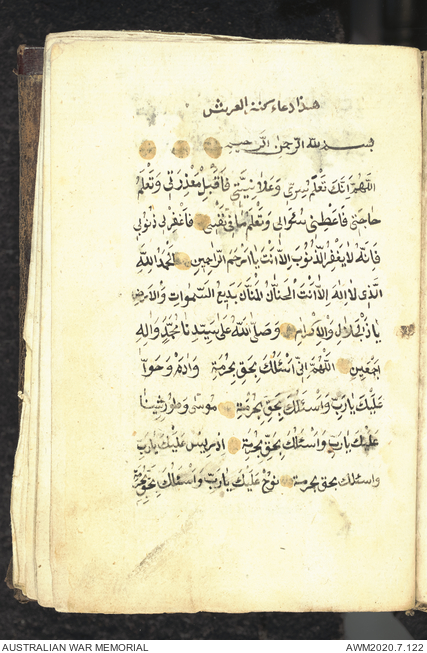 هذا دعاء كنز العرش
بسم الله الرحمن الرحيم
اللهم انك تعلم سرى وعلانيتى فاقبل معذرتى وتعلم
حاجتى فاعطنى سؤالى وتعلم ما فى نفسى فاغفر لى ذنوبى
فانه لا يغفر الذنوب الا انت يا ارحم الراحمين الحمد لله
الذى لا اله الا انت الحنان المنان بديع السموات والارض
يا ذا الجلال والاكرام وصلى الله على سيدنا محمد واله
اجمعين اللهم انى اسئلك بحق بحرمة وادم وحوا
عليك يا رب واسئلك بحق بحرمة موسى وطور سينا
عليك يا رب واسئلك بحق بحرمة ادريس عليك يا رب
واسئلك بحق بحرمة نوح عليك يا رب واسئلك بحق بحرمة
AUSTRALIAN WAR MEMORIAL AWM2020.7.122